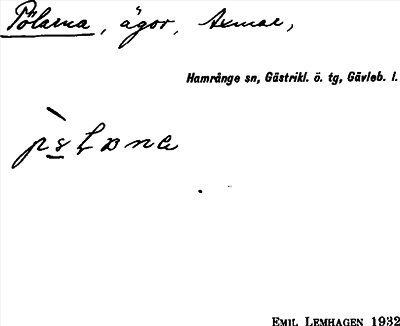 Pölarna, ägor, Axmar,
Hamrånge sn, Gästrikl. ö. tg, Gävleb. l.
EMIL LEMHAGEN 1932